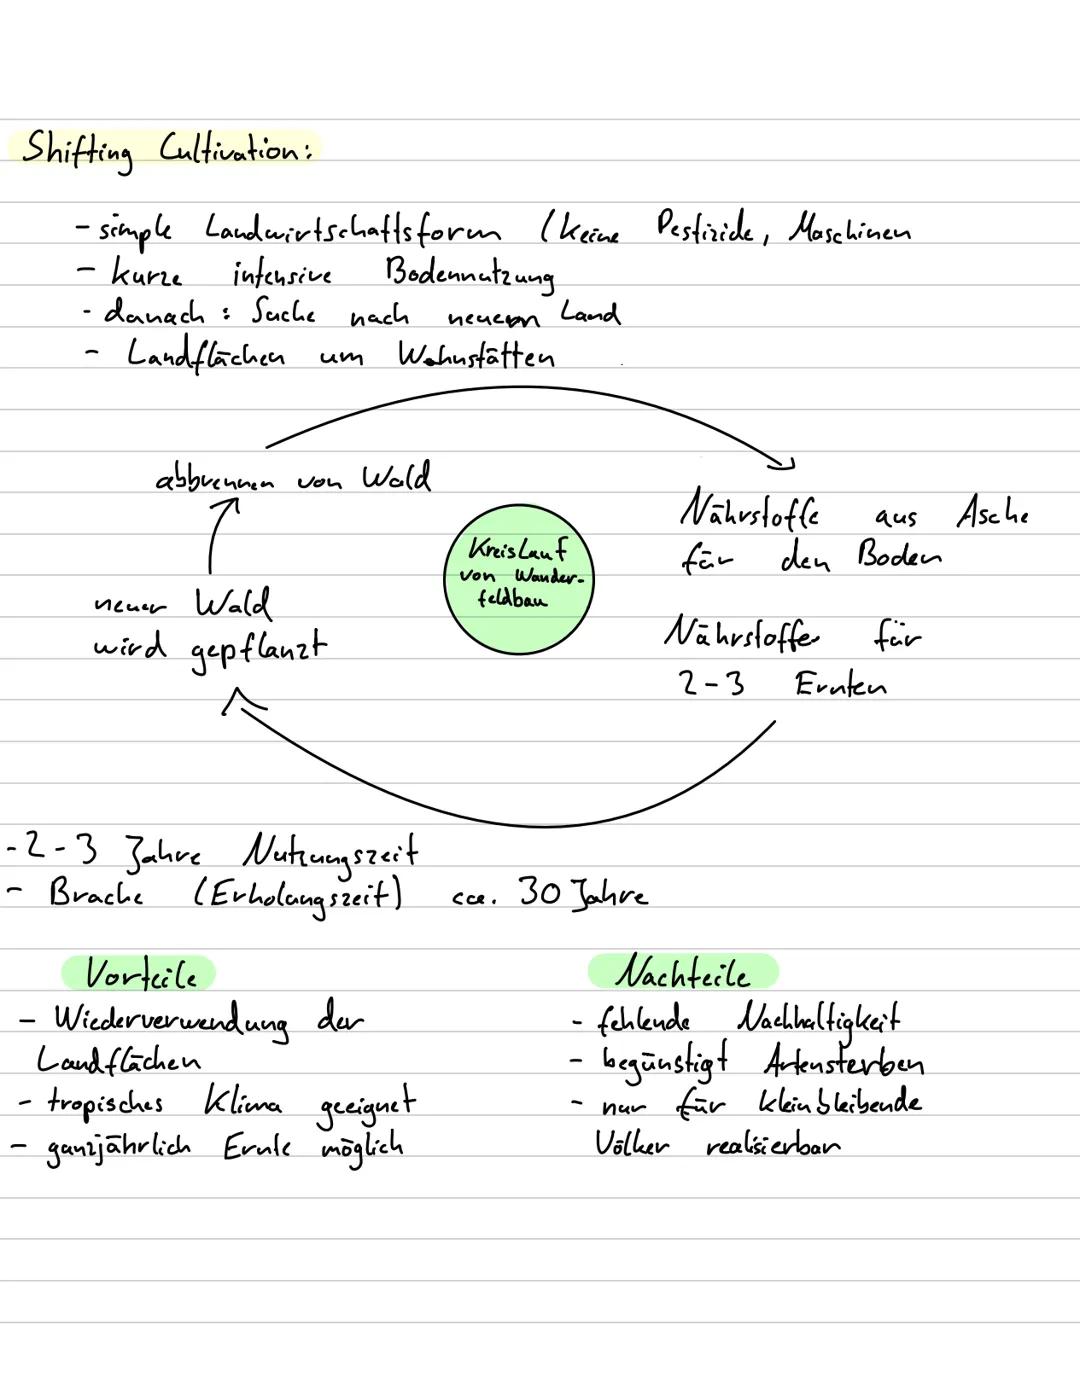 Shifting Cultivation:
- simple Landwirtschaftsform (keine Pestizide, Maschinen
- kurze intensive Bodennutzung
- danach: Suche nach neuem Land
- Landflächen um Wohnstätten
abbrennen von Wald
Nährstoffe aus Asche
für den Boden
Kreislauf
von Wander-
feldbau
neuer Wald
wird gepflanzt
Nährstoffe für
2-3 Ernten
-2-3 Jahre Nutzungszeit
- Brache (Erholungszeit) cca. 30 Jahre
Vorteile
- Wiederverwendung der
Landflächen
- tropisches Klima geeignet
- ganzjährlich Ernte möglich
Nachteile
- fehlende Nachhaltigkeit
- begünstigt Artensterben
- nur für kleinbleibende
Völker realisierbar